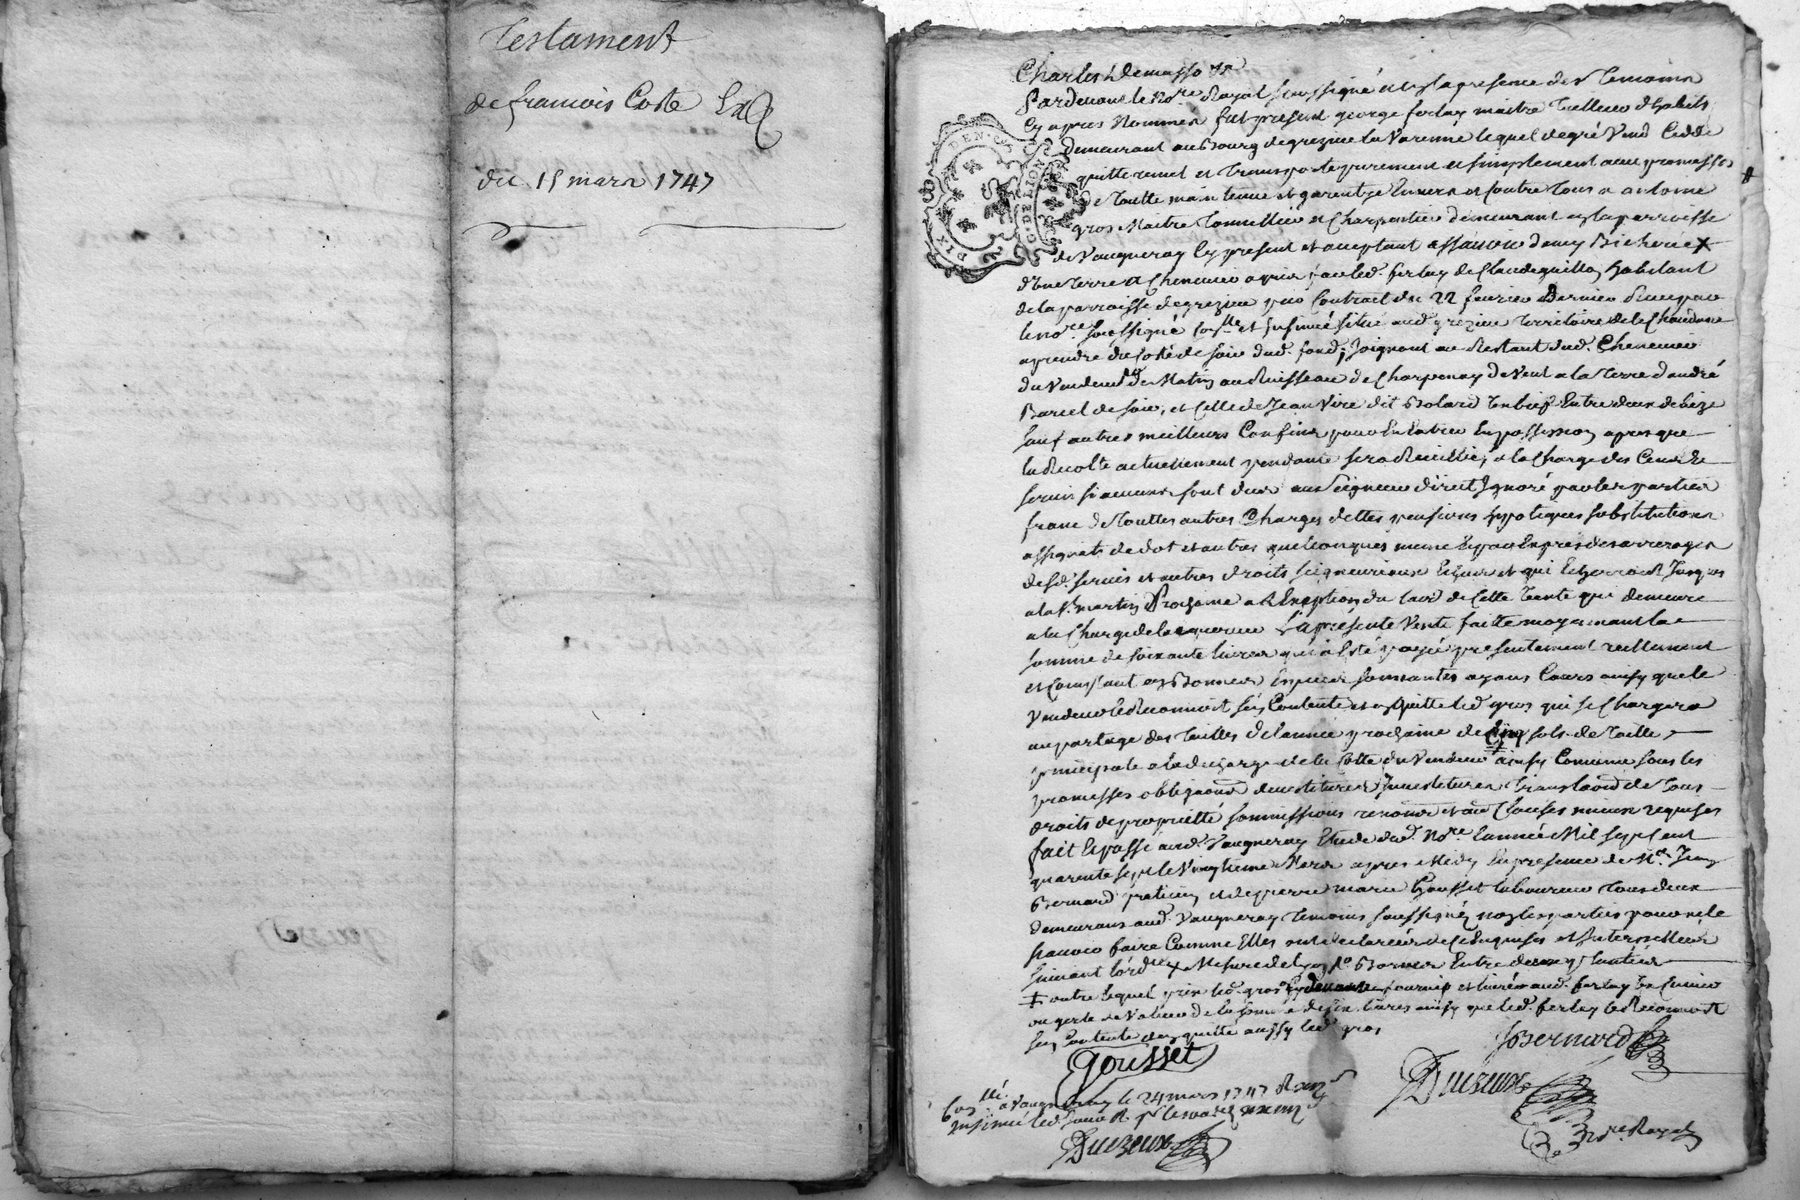 Testament
de francois Coste
du 15 mars 1747
Charles Demasso
Pardevant le No.re Royal soussigné et en la presence des Temoins
Cy apres Nommés fut present george ferlay maitre Tailleur d'habits
demeurant au Bourg de grezieu la Varenne lequel de gré Vend Cedde
quitte remet et Transporte purement et simplement avec promesse
de Toutte maintenue et garentie Envers et Contre Tous a antoine
gros Maitre Tonnellier et Charpentier demeurant en la parroisse
de Vaugneray Cy present et acceptant assavoir demy Bicherée X
d'une Terre et Cheneviere par led. ferlay de Claude habitant
de la parroisse de grezieu par Contract du 22 fevrier Dernier Receu par
le no.re soussigné Con.llé et Insinué situé aud. grezieu Territoire de la
a prendre du Coté de soir dud. fond; Joignant au Restant dud. Chenevier
du Vendeur de Matin au Ruisseau de Charpenay de Vent a la Terre d'andré
de soir, et Celle de Jean Vire dit Bolard Entre deux de bize
sauf autres meilleurs Confins pour En Entrer En possession apres que
la Recolte actuellement pendante sera Recueillie, a la Charge des Cens et
servis si aucuns sont dus au Seigneur direct Ignoré par les parties
franc de Touttes autres Charges dettes pensions hypoteques substitutions
assignats de dot et autres quelconques meme En par Expres des arrerages
desd. servis et autres droits seigneuriaux Echus et qui Echerront Jusques
a la St. martin Prochaine a l'Exeption du laod de Cette Vente qui demeure
a la Charge de l'acquereur La presente Vente faitte moyennant la
somme de soixante livres qui a Eté payée presentement reellement
et Comptant en Bonnes Especes sonnantes ayans Cours ainsy que le
Vendeur le Reconnoit s'en Contente et en quitte led. gros qui se Chargera
au partage des Tailles de l'année prochaine de Cinq sols de Taille
principale a la decharge de la Cotte du Vendeur ainsy Convenu sous les
promesses obligaôns devestitures Investitures Translaôn de Tous
droits de proprietté soumissions renonôns et aûe Clauses mieux requises
fait Et passé aud. Vaugneray Etude dud. No.re l'année Mil sept cent
quarente sept le Vingtieme Mars apres Midy En presence de M.re Jean
Bernard praticien et de pierre marie Gousset laboureur Tous deux
demeurans aud. Vaugneray Temoins soussignés non les parties pour ne le
scavoir faire Comme Elles ont declaré de Ce Enquises et Interpellées
suivant l'ord.ce X Mesure de Lyon Bornes Entre deux
‡ outre lequel prix led. gros fourni et livré aud. ferlay
de Valeur de la somme de six livres ainsy que led. ferlay le Reconnoit
s'en Contente En quitte aussy led. gros
Gousset
JBernard
Duezeux
Con.llé a Vaugneray le 24 mars 1747
Insinué led. Jour R.
Duezeux
No.re Royal